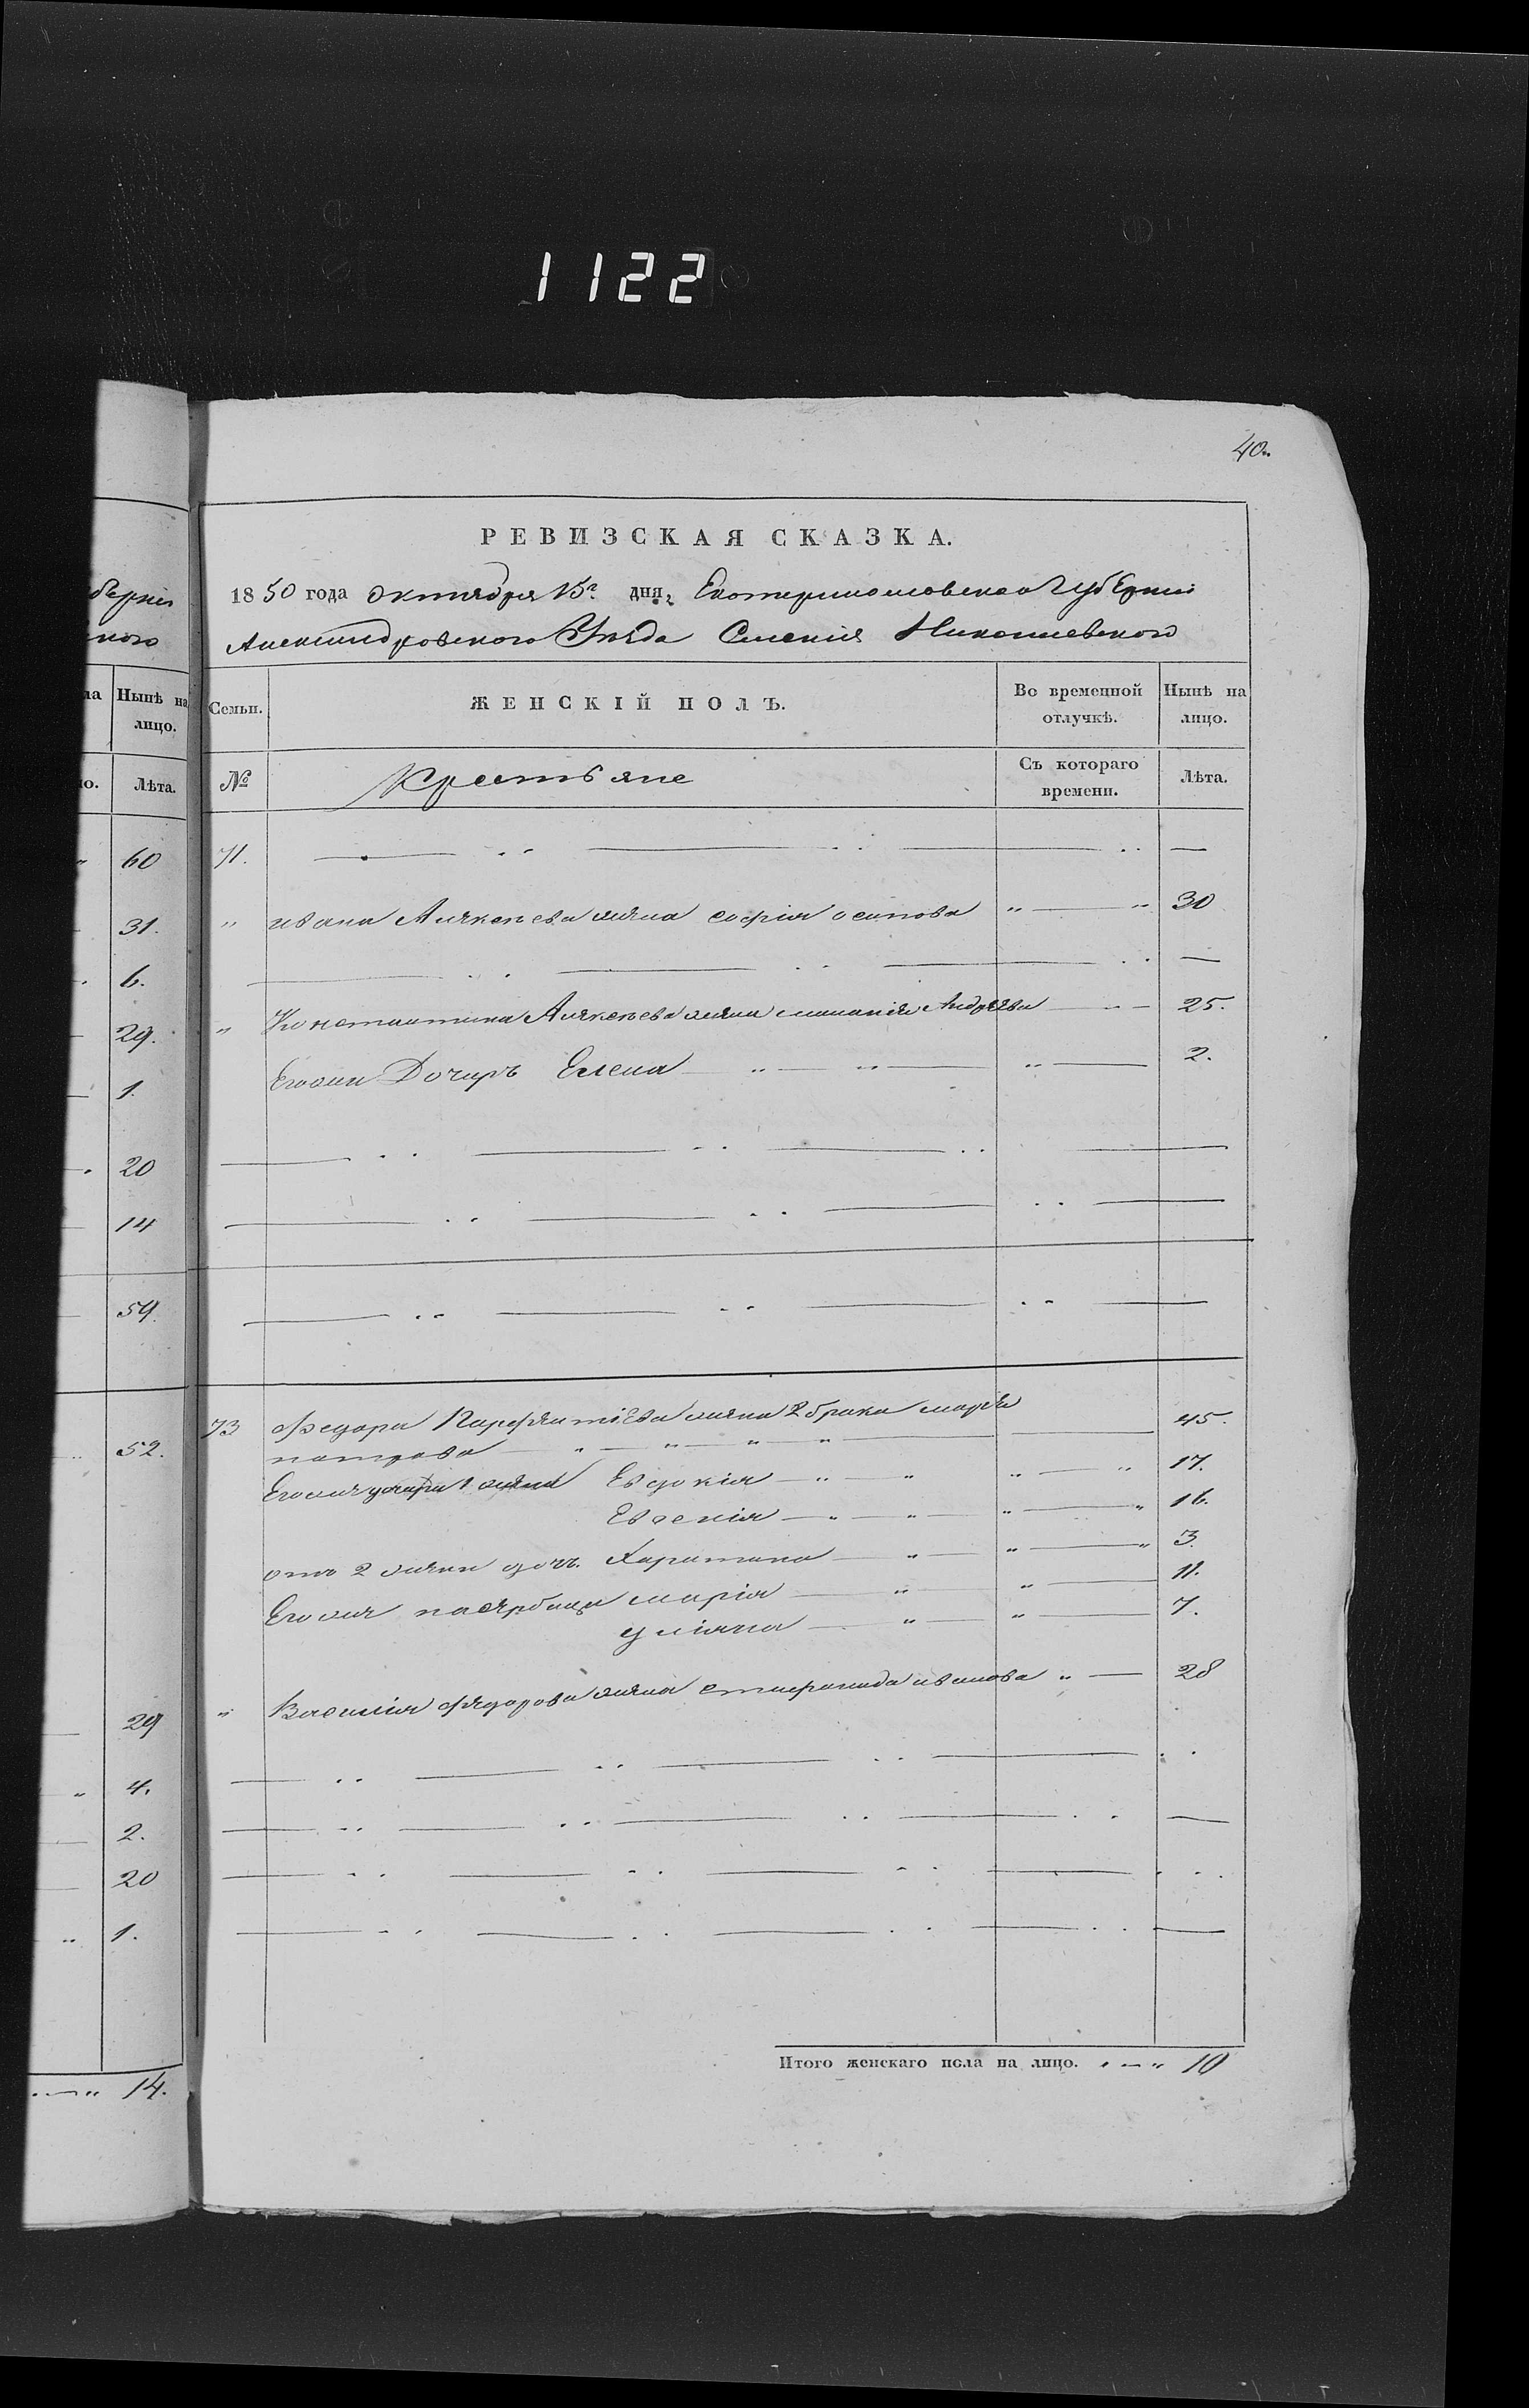 1122
40.
РЕВИЗСКАЯ СКАЗКА.
1850 года октября 15го дня, Екатеринославской Губерніи
Александровского Уезда Селенія Николаевского
Семьи.
ЖЕНСКІЙ ПОЛЪ.
Во временной отлучкѣ.
Нынѣ на лицо.
№
Крестьяне
Съ котораго времени.
Лѣта.
71.
" ивана Алексеева жена софія осипова " — " 30
" Константина Алексеева жена Андреева — 25.
Егоже Дочерь Елена 2.
73 Федора жена 2 брака марія 45.
петрова
Егоже дочери 1 жены Евдокія 17.
Евгенія 16.
отъ 2 жены доч. Харитина 3.
Егоже падчерицы марія 11.
уліяна 7.
" Василія федорова жена стефанида иванова " — 28
Итого женскаго пола на лицо. 10
берніи
ского
ла
Нынѣ на лицо.
ю.
Лѣта.
60
31.
6.
29.
1.
20
14
59.
52.
29
4.
2.
20
1.
14.